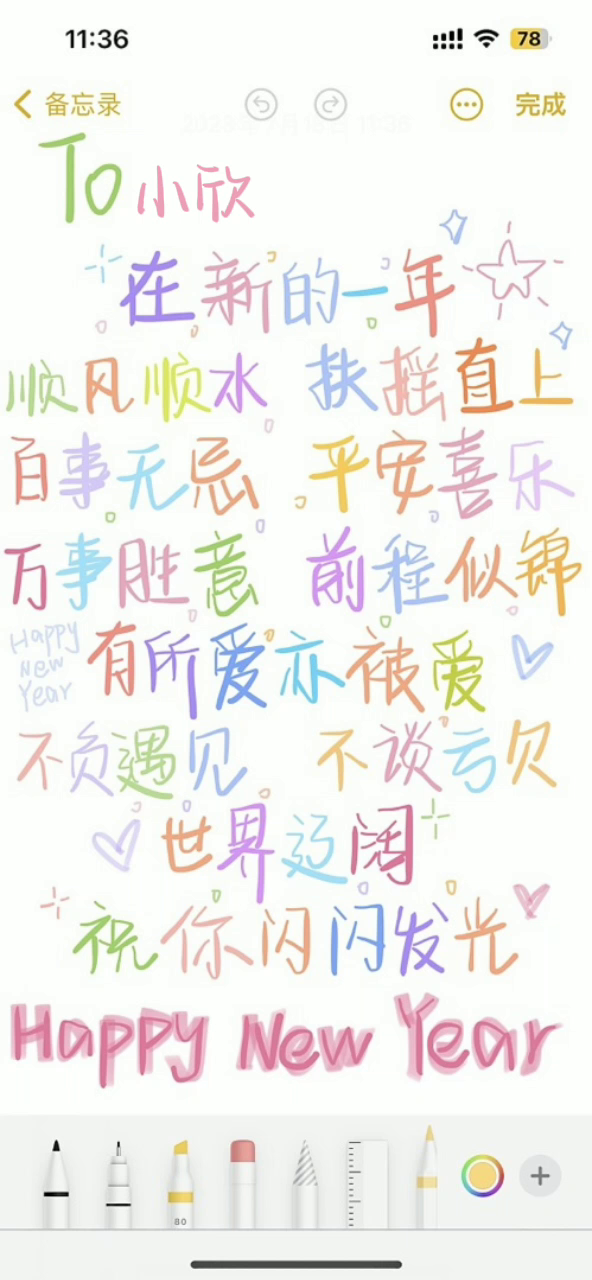 11:36 78
备忘录 完成
2023年7月18日 11:36
To 小欣
在新的一年
顺风顺水 扶摇直上
百事无忌 平安喜乐
万事胜意 前程似锦
Happy
New
Year
有所爱亦被爱
不负遇见 不谈亏欠
世界辽阔
祝你闪闪发光
Happy New Year
80